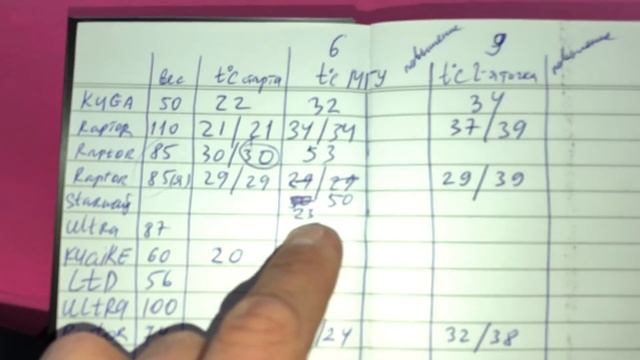 6 повышение 9 повышение
вес t°C старта t°C МГУ t°C 1-я точка
KUGA 50 22 32 34
Raptor 110 21/21 34/34 37/39
Raptor 85 30/30 53
Raptor 85(я) 29/29 29/29 29/39
Starway 50
23
Ultra 87
60 20
LtD 56
ULtRA 100
/24 32/38